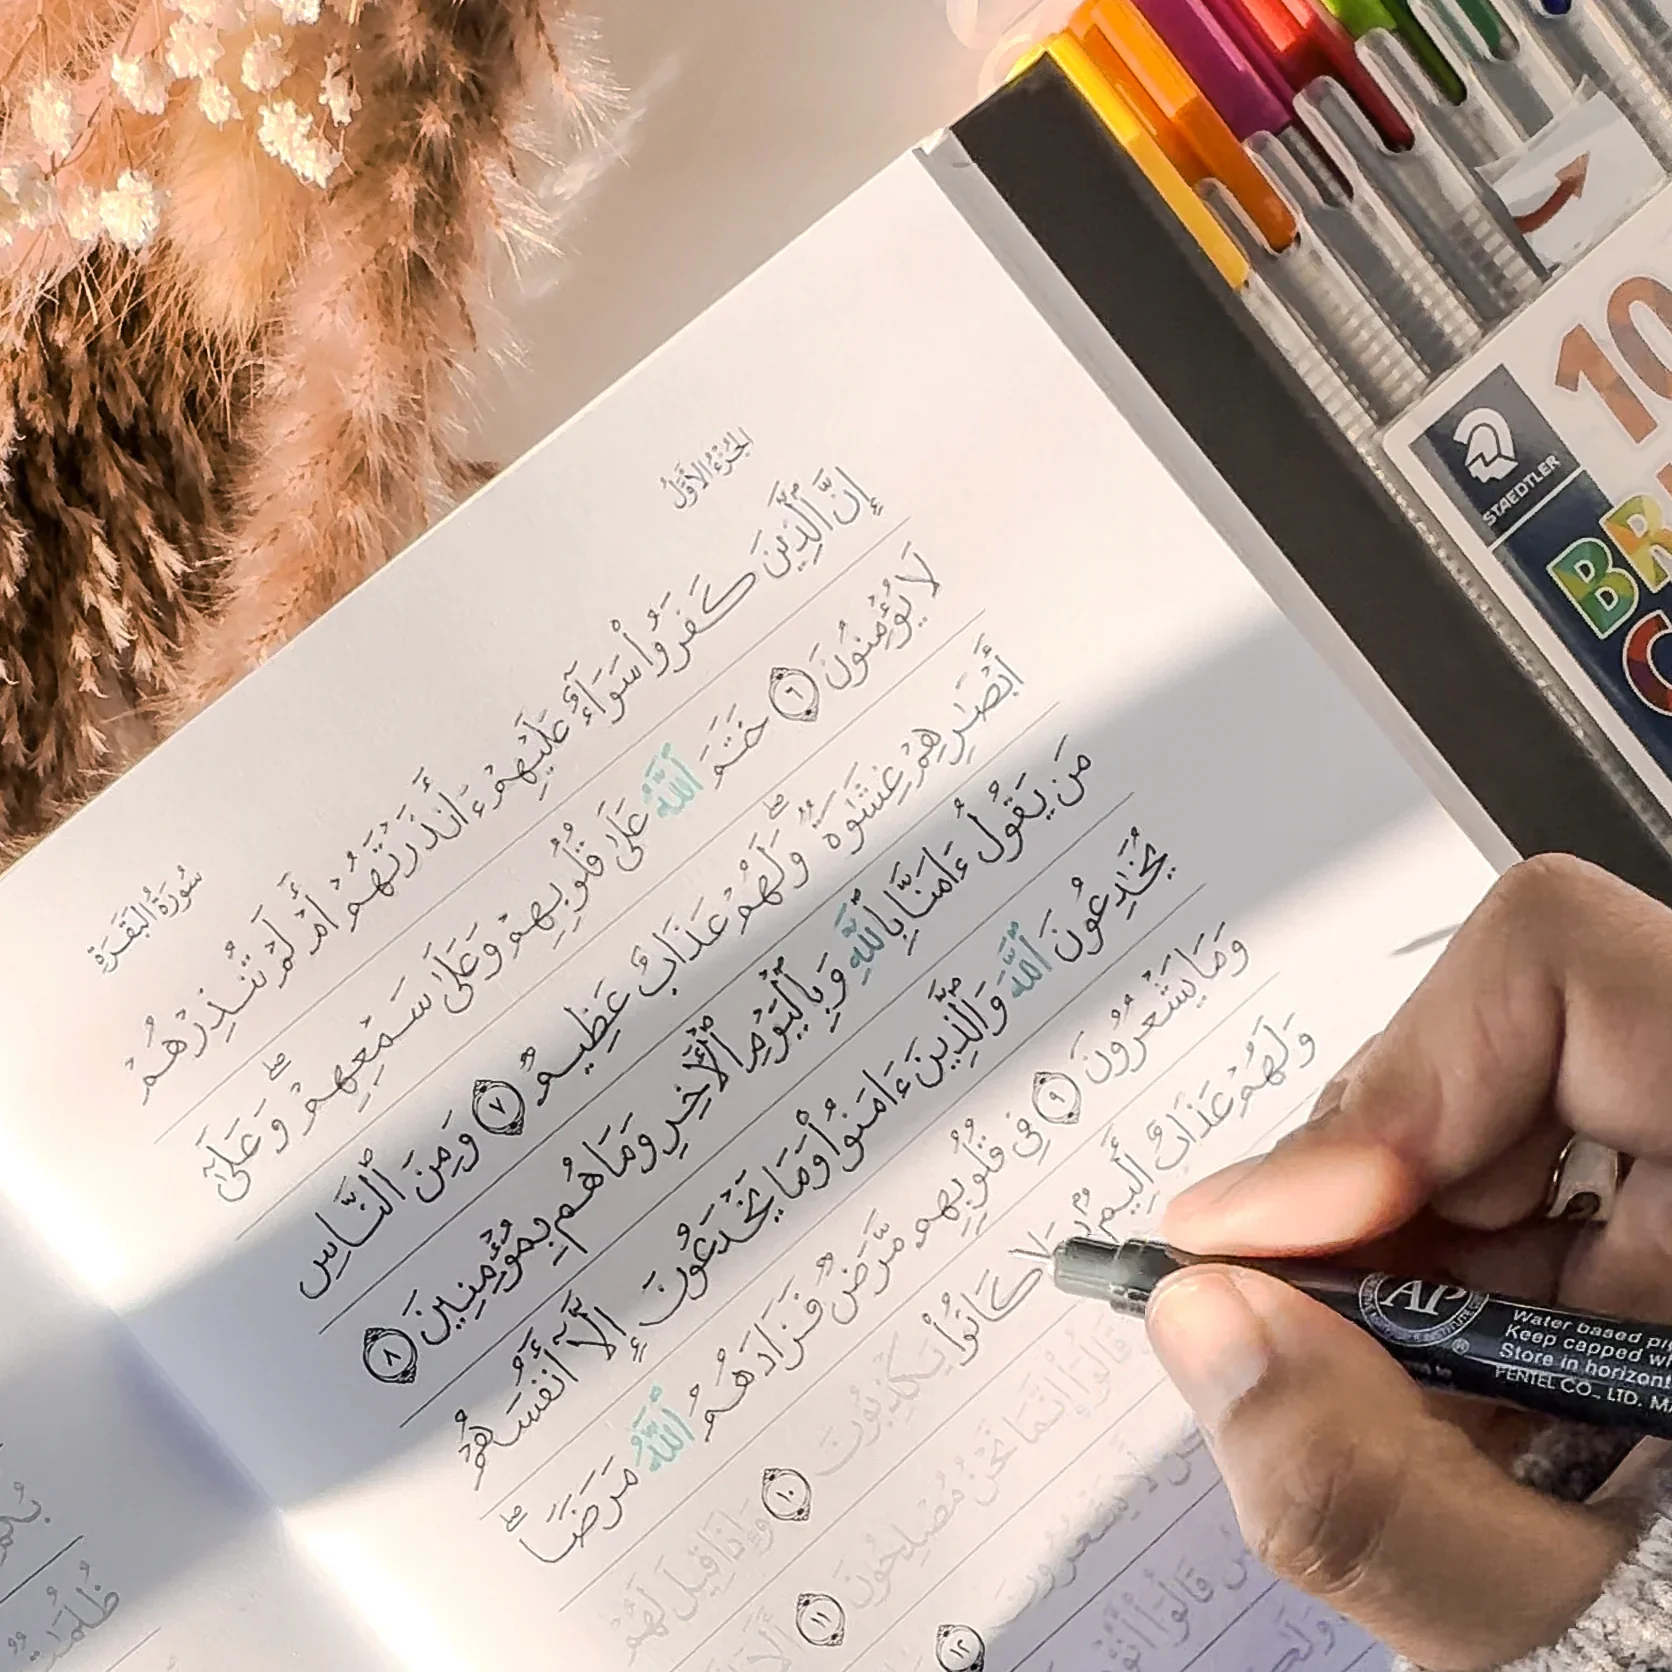 الجُزْءُ الأَوَّلُ
سُورَةُ البَقَرَةِ
إِنَّ ٱلَّذِينَ كَفَرُوا۟ سَوَآءٌ عَلَيْهِمْ ءَأَنذَرْتَهُمْ أَمْ لَمْ تُنذِرْهُمْ
لَا يُؤْمِنُونَ ٦ خَتَمَ ٱللَّهُ عَلَىٰ قُلُوبِهِمْ وَعَلَىٰ سَمْعِهِمْ ۖ وَعَلَىٰٓ
أَبْصَـٰرِهِمْ غِشَـٰوَةٌ ۖ وَلَهُمْ عَذَابٌ عَظِيمٌ ٧ وَمِنَ ٱلنَّاسِ
مَن يَقُولُ ءَامَنَّا بِٱللَّهِ وَبِٱلْيَوْمِ ٱلْـَٔاخِرِ وَمَا هُم بِمُؤْمِنِينَ ٨
يُخَـٰدِعُونَ ٱللَّهَ وَٱلَّذِينَ ءَامَنُوا۟ وَمَا يَخْدَعُونَ إِلَّآ أَنفُسَهُمْ
وَمَا يَشْعُرُونَ ٩ فِى قُلُوبِهِم مَّرَضٌ فَزَادَهُمُ ٱللَّهُ مَرَضًا ۖ
وَلَهُمْ عَذَابٌ أَلِيمٌۢ بِمَا كَانُوا۟ يَكْذِبُونَ ١٠ وَإِذَا قِيلَ لَهُمْ
قَالُوٓا۟ إِنَّمَا نَحْنُ مُصْلِحُونَ ١١
لَّا يَشْعُرُونَ ١٢
ظُلُمَـٰتٌ
STAEDTLER
10
AP
Water based
Keep capped
Store in horizont
PENTEL CO., LTD.